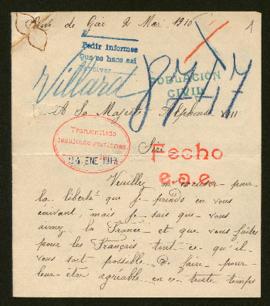 de 2 Mai 1916
1
Pedir informes
que no hace sei
POBLACION
CIVIL
Villard 8727
A Sa Majesté Alphonse XIII
Transmitido
24 ENE 1917
Sire
Fecho
e.o.e.
Veuillez m'excuser pour
la liberté que je prends en vous
écrivant, mais je sais que vous
aimez la France et que vous faites
pour les Français tout ce qu'il
vous est possible de faire pour
leur être agréable en ce triste temps